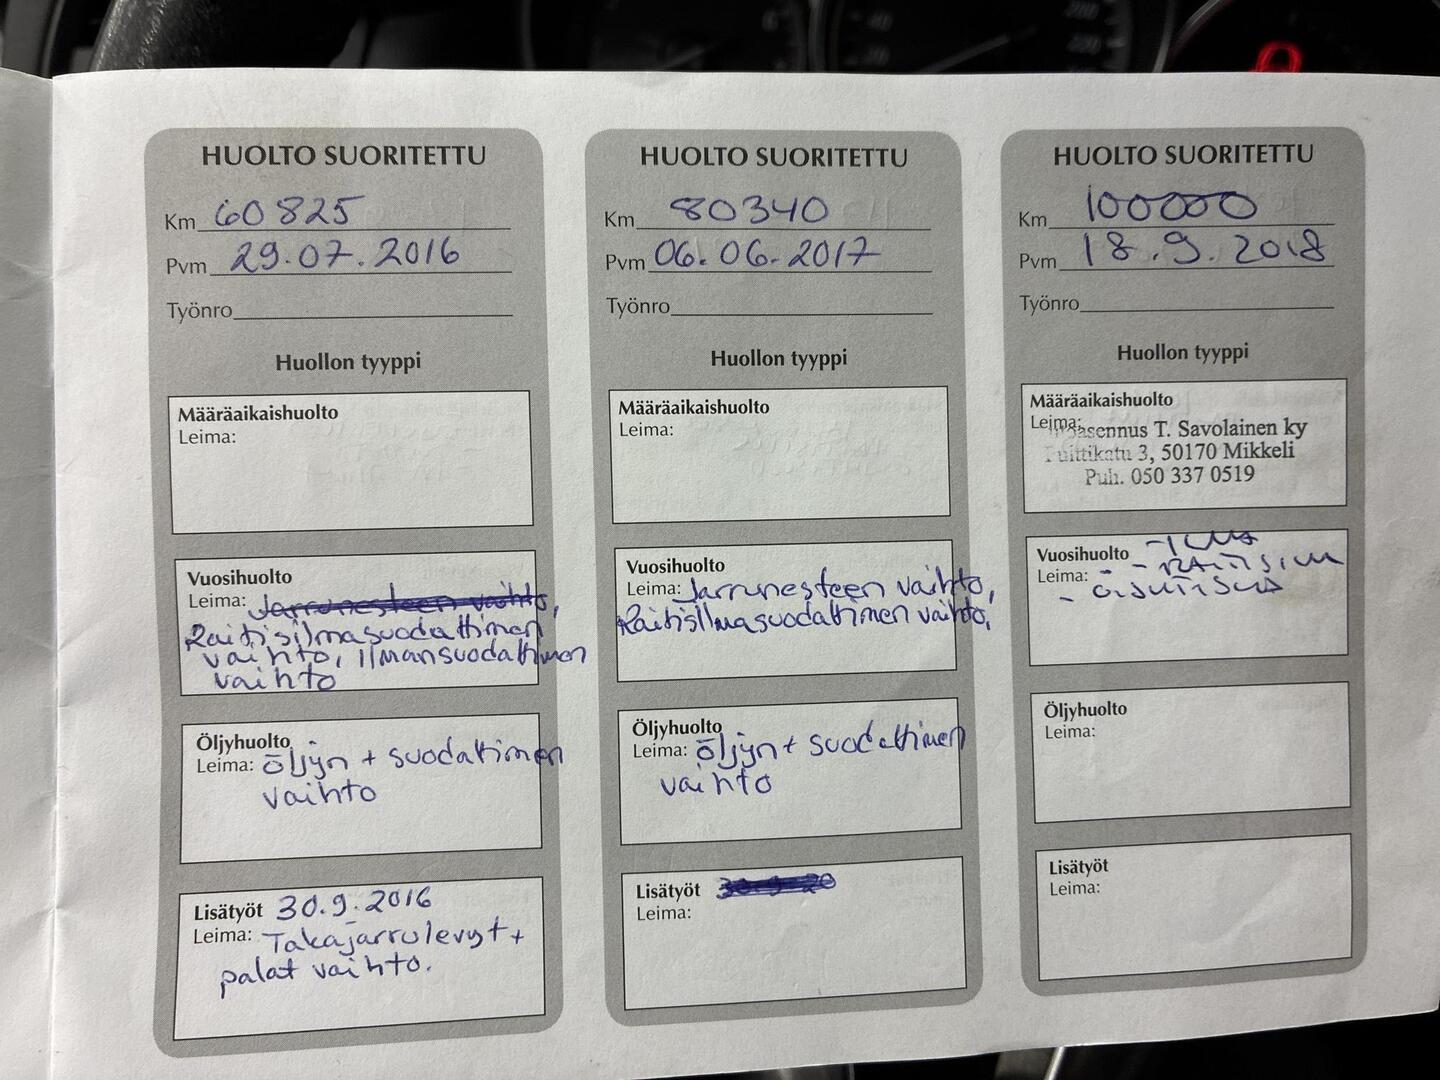 HUOLTO SUORITETTU
Km 60825
Pvm 29.07.2016
Työnro
Huollon tyyppi
Määräaikaishuolto
Leima:
Vuosihuolto
Leima: Jarrunesteen vaihto,
Raitisilmasuodattimen
vaihto, ilmansuodattimen
vaihto
Öljyhuolto
Leima: öljyn + suodattimen
vaihto
Lisätyöt 30.9.2016
Leima: Takajarrulevyt +
palat vaihto.
HUOLTO SUORITETTU
Km 80340
Pvm 06.06.2017
Työnro
Huollon tyyppi
Määräaikaishuolto
Leima:
Vuosihuolto
Leima: Jarrunesteen vaihto,
Raitisilmasuodattimen vaihto,
Öljyhuolto
Leima: öljyn + suodattimen
vaihto
Lisätyöt
Leima:
HUOLTO SUORITETTU
Km 100000
Pvm 18.9.2018
Työnro
Huollon tyyppi
Määräaikaishuolto
Leima:
T. Savolainen ky
3, 50170 Mikkeli
Puh. 050 337 0519
Vuosihuolto - ILMA
Leima:
Öljyhuolto
Leima:
Lisätyöt
Leima: